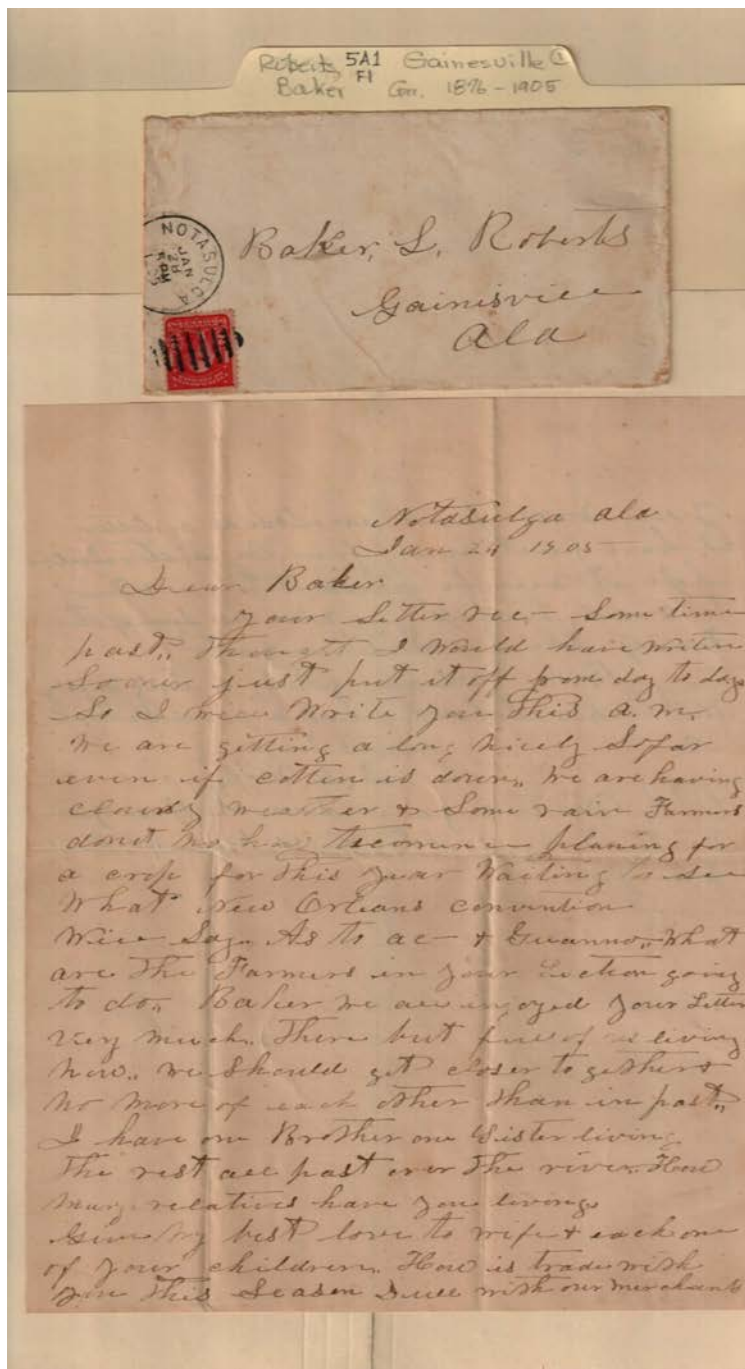 Roberts, 5A1 Gainesville ①
Baker F1 Corr. 1876-1905
NOTASULGA
JAN
28
Baker, L. Roberts
Gainisvill
Ala
Notasulga Ala
Jan 28 1905
Dear Baker
your Letter rec- Some time
past,, Thought I Would have writen
Sooner just put it off from day to day
So I will Write you This a.m.
We are getting a long Nicely So far
even if cotten is down,, We are having
cloudy weather & Some rain Farmers
dont no how to comence planing for
a crop for This year Waiting to See
What New Orleans convention
Will Say. As to ac- & Guanno,, What
are The Farmers in your Section going
to do,, Baker we all enjoyed your Letter
very much. There but few of us living
Now,, we Should get closer to gether &
No more of each other Than in past,,
I have one Brother one Sister living
The rest all past over The river. How
many relatives have you living
Give My best love to wife & each one
of your children. How is trade with
you This Season Dull with our merchants